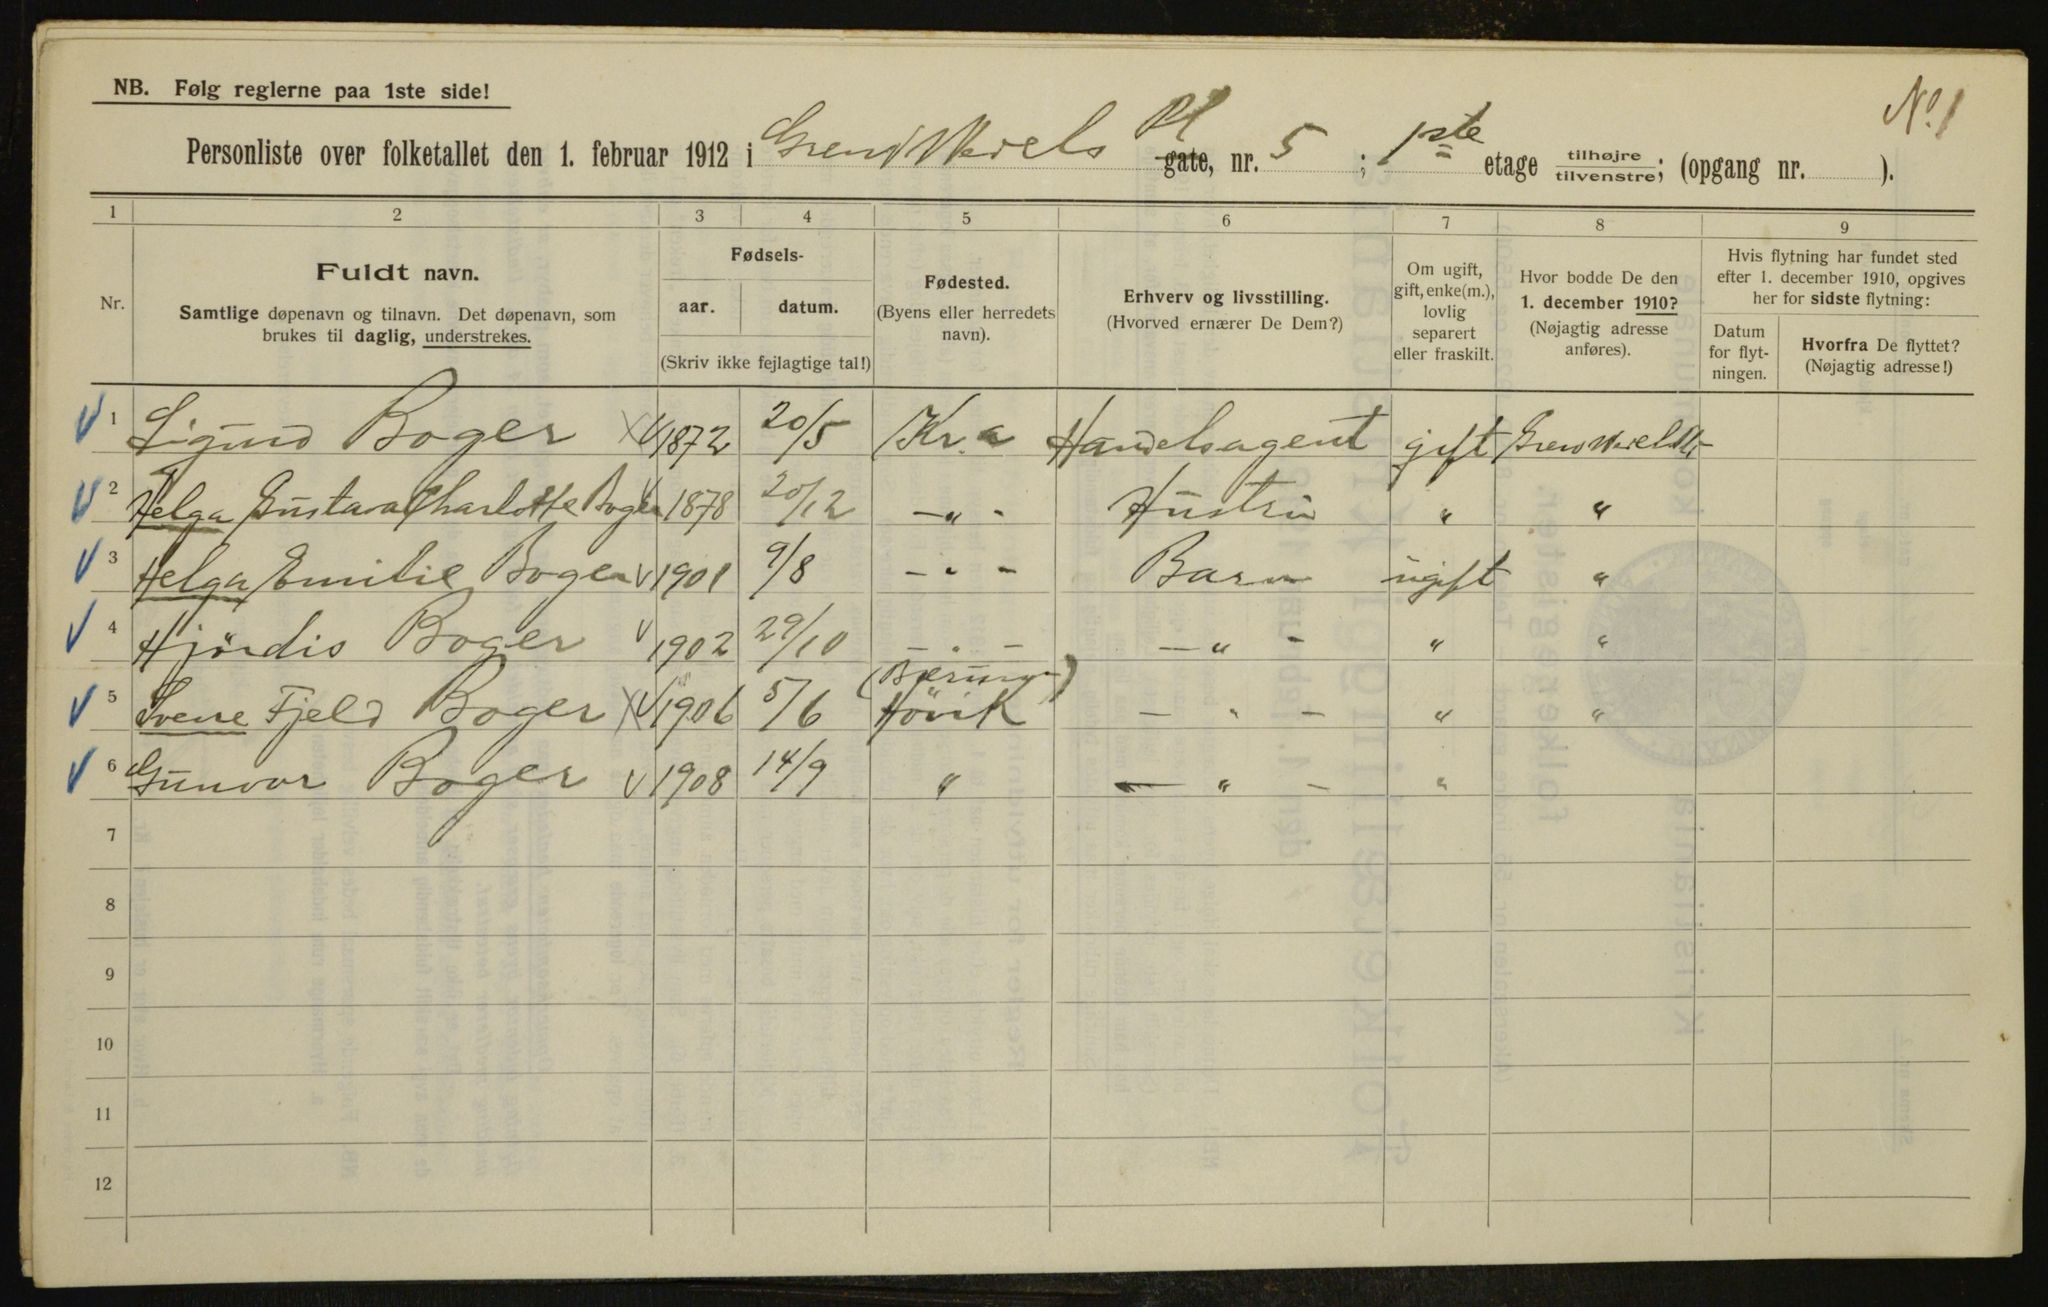 NB. Følg reglerne paa 1ste side!
No. 1
Personliste over folketallet den 1. februar 1912 i Grev Wedels Pl gate, nr. 5 ; 1ste etage tilhøjre tilvenstre; (opgang nr. ).
1 2 3 4 5 6 7 8 9
Nr.
Fuldt navn.
Samtlige døpenavn og tilnavn. Det døpenavn, som
brukes til daglig, understrekes.
Fødsels-
aar. datum.
(Skriv ikke fejlagtige tal!)
Fødested.
(Byens eller herredets
navn).
Erhverv og livsstilling.
(Hvorved ernærer De Dem?)
Om ugift,
gift, enke(m.),
lovlig
separert
eller fraskilt.
Hvor bodde De den
1. december 1910?
(Nøjagtig adresse
anføres).
Hvis flytning har fundet sted
efter 1. december 1910, opgives
her for sidste flytning:
Datum
for flyt-
ningen.
Hvorfra De flyttet?
(Nøjagtig adresse!)
1 Sigurd Boger 1872 20/5 Kr.a Handelsagent gift Grev Wedels
2 Helga Gustava Charlotte Boger 1878 20/12 - " - Hustru " "
3 Helga Emilie Boger 1901 9/8 - " - Barn ugift "
4 Hjördis Boger 1902 29/10 - " - - " - " "
5 Sverre Fjeld Boger 1906 5/6 (Bærum) Hövik - " - " "
6 Gunvor Boger 1908 14/9 " - " - "
7
8
9
10
11
12